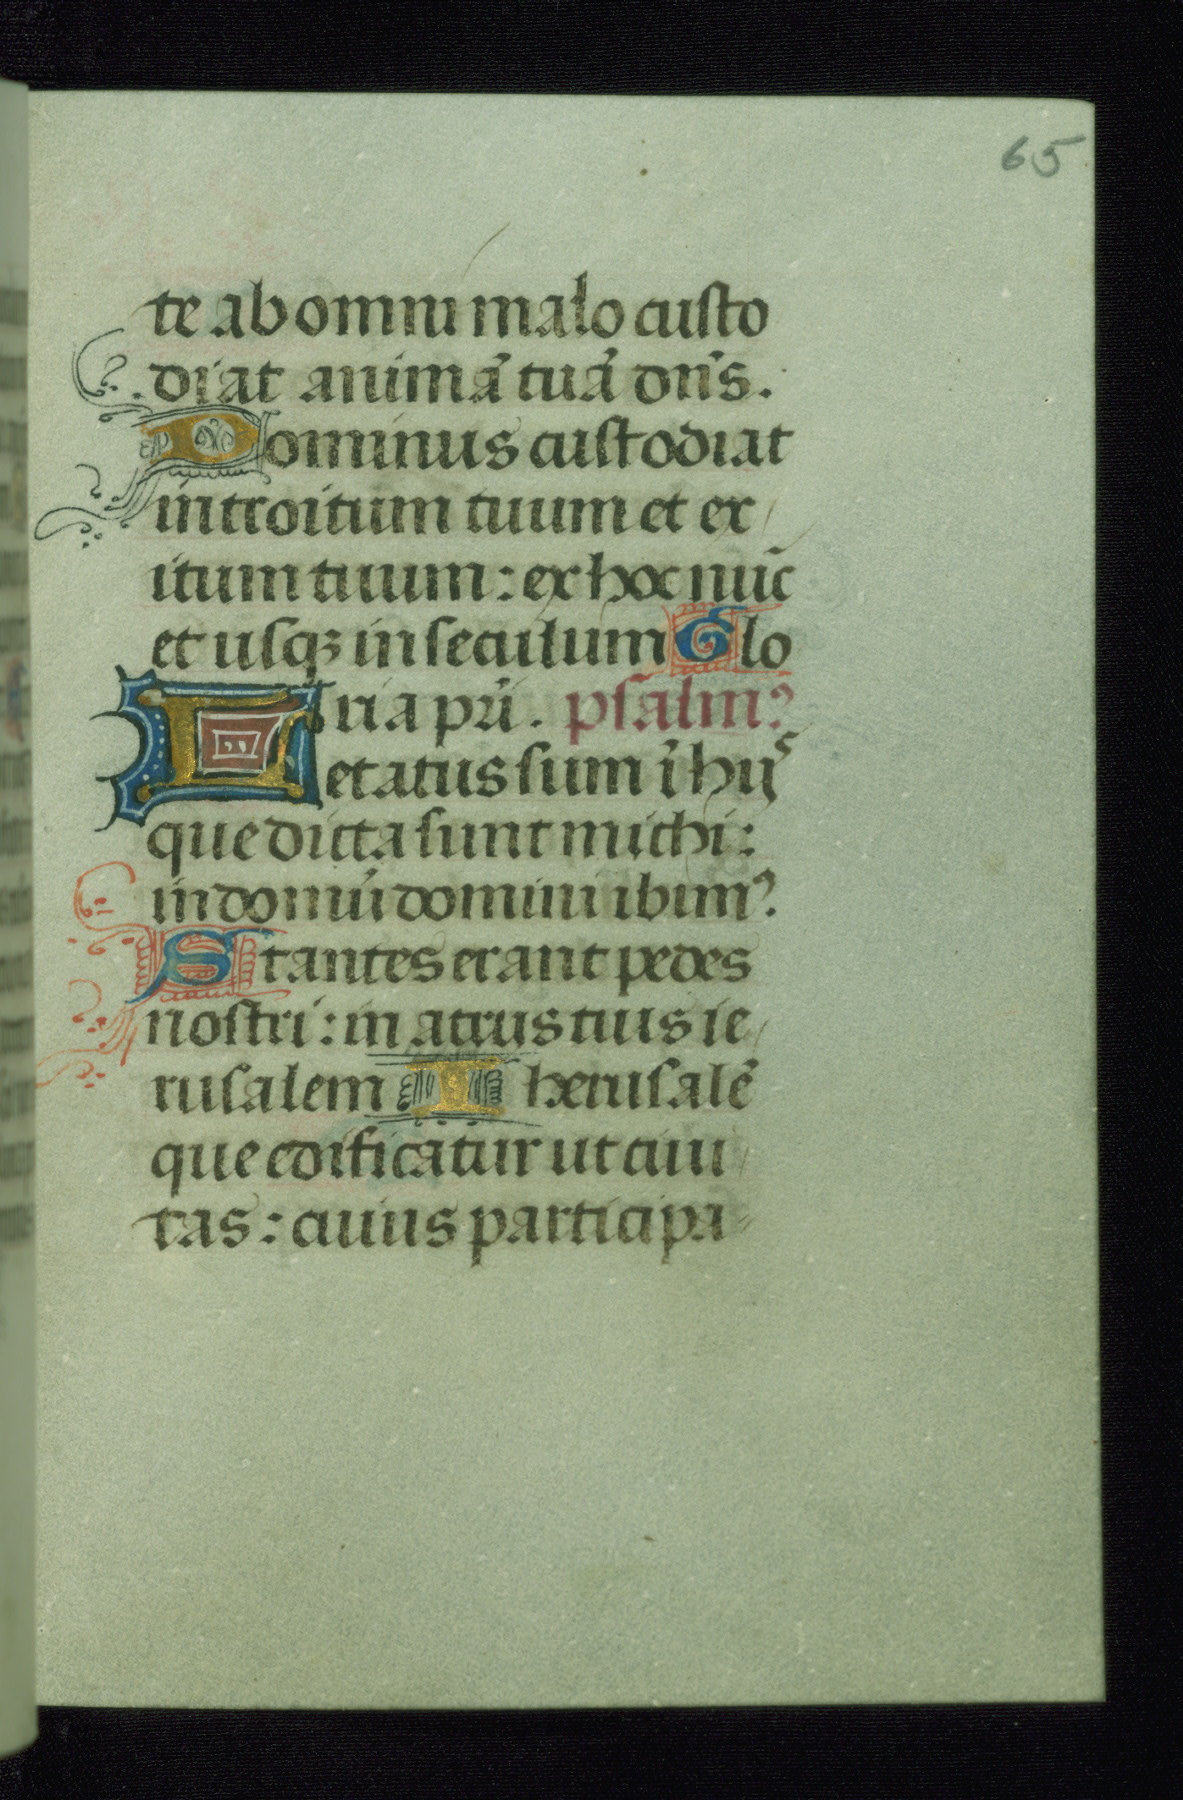 65
te ab omni malo custo
diat animã tuã dñs.
Dominus custodiat
introitum tuum et ex
itum tuum : ex hoc nũc
et usqꝫ in seculum Glo
ria pr̃i. psalmꝰ
Letatus sum ĩ hijs
que dicta sunt michi :
in domũ domini ibimꝰ.
Stantes erant pedes
nostri : in atrijs tuis ie
rusalem Iherusalẽ
que edificatur ut ciui
tas : cuius participa